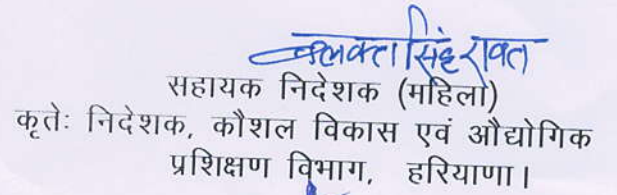 सिंह रावत
सहायक निदेशक (महिला)
कृतेः निदेशक, कौशल विकास एवं औद्योगिक
प्रशिक्षण विभाग, हरियाणा।